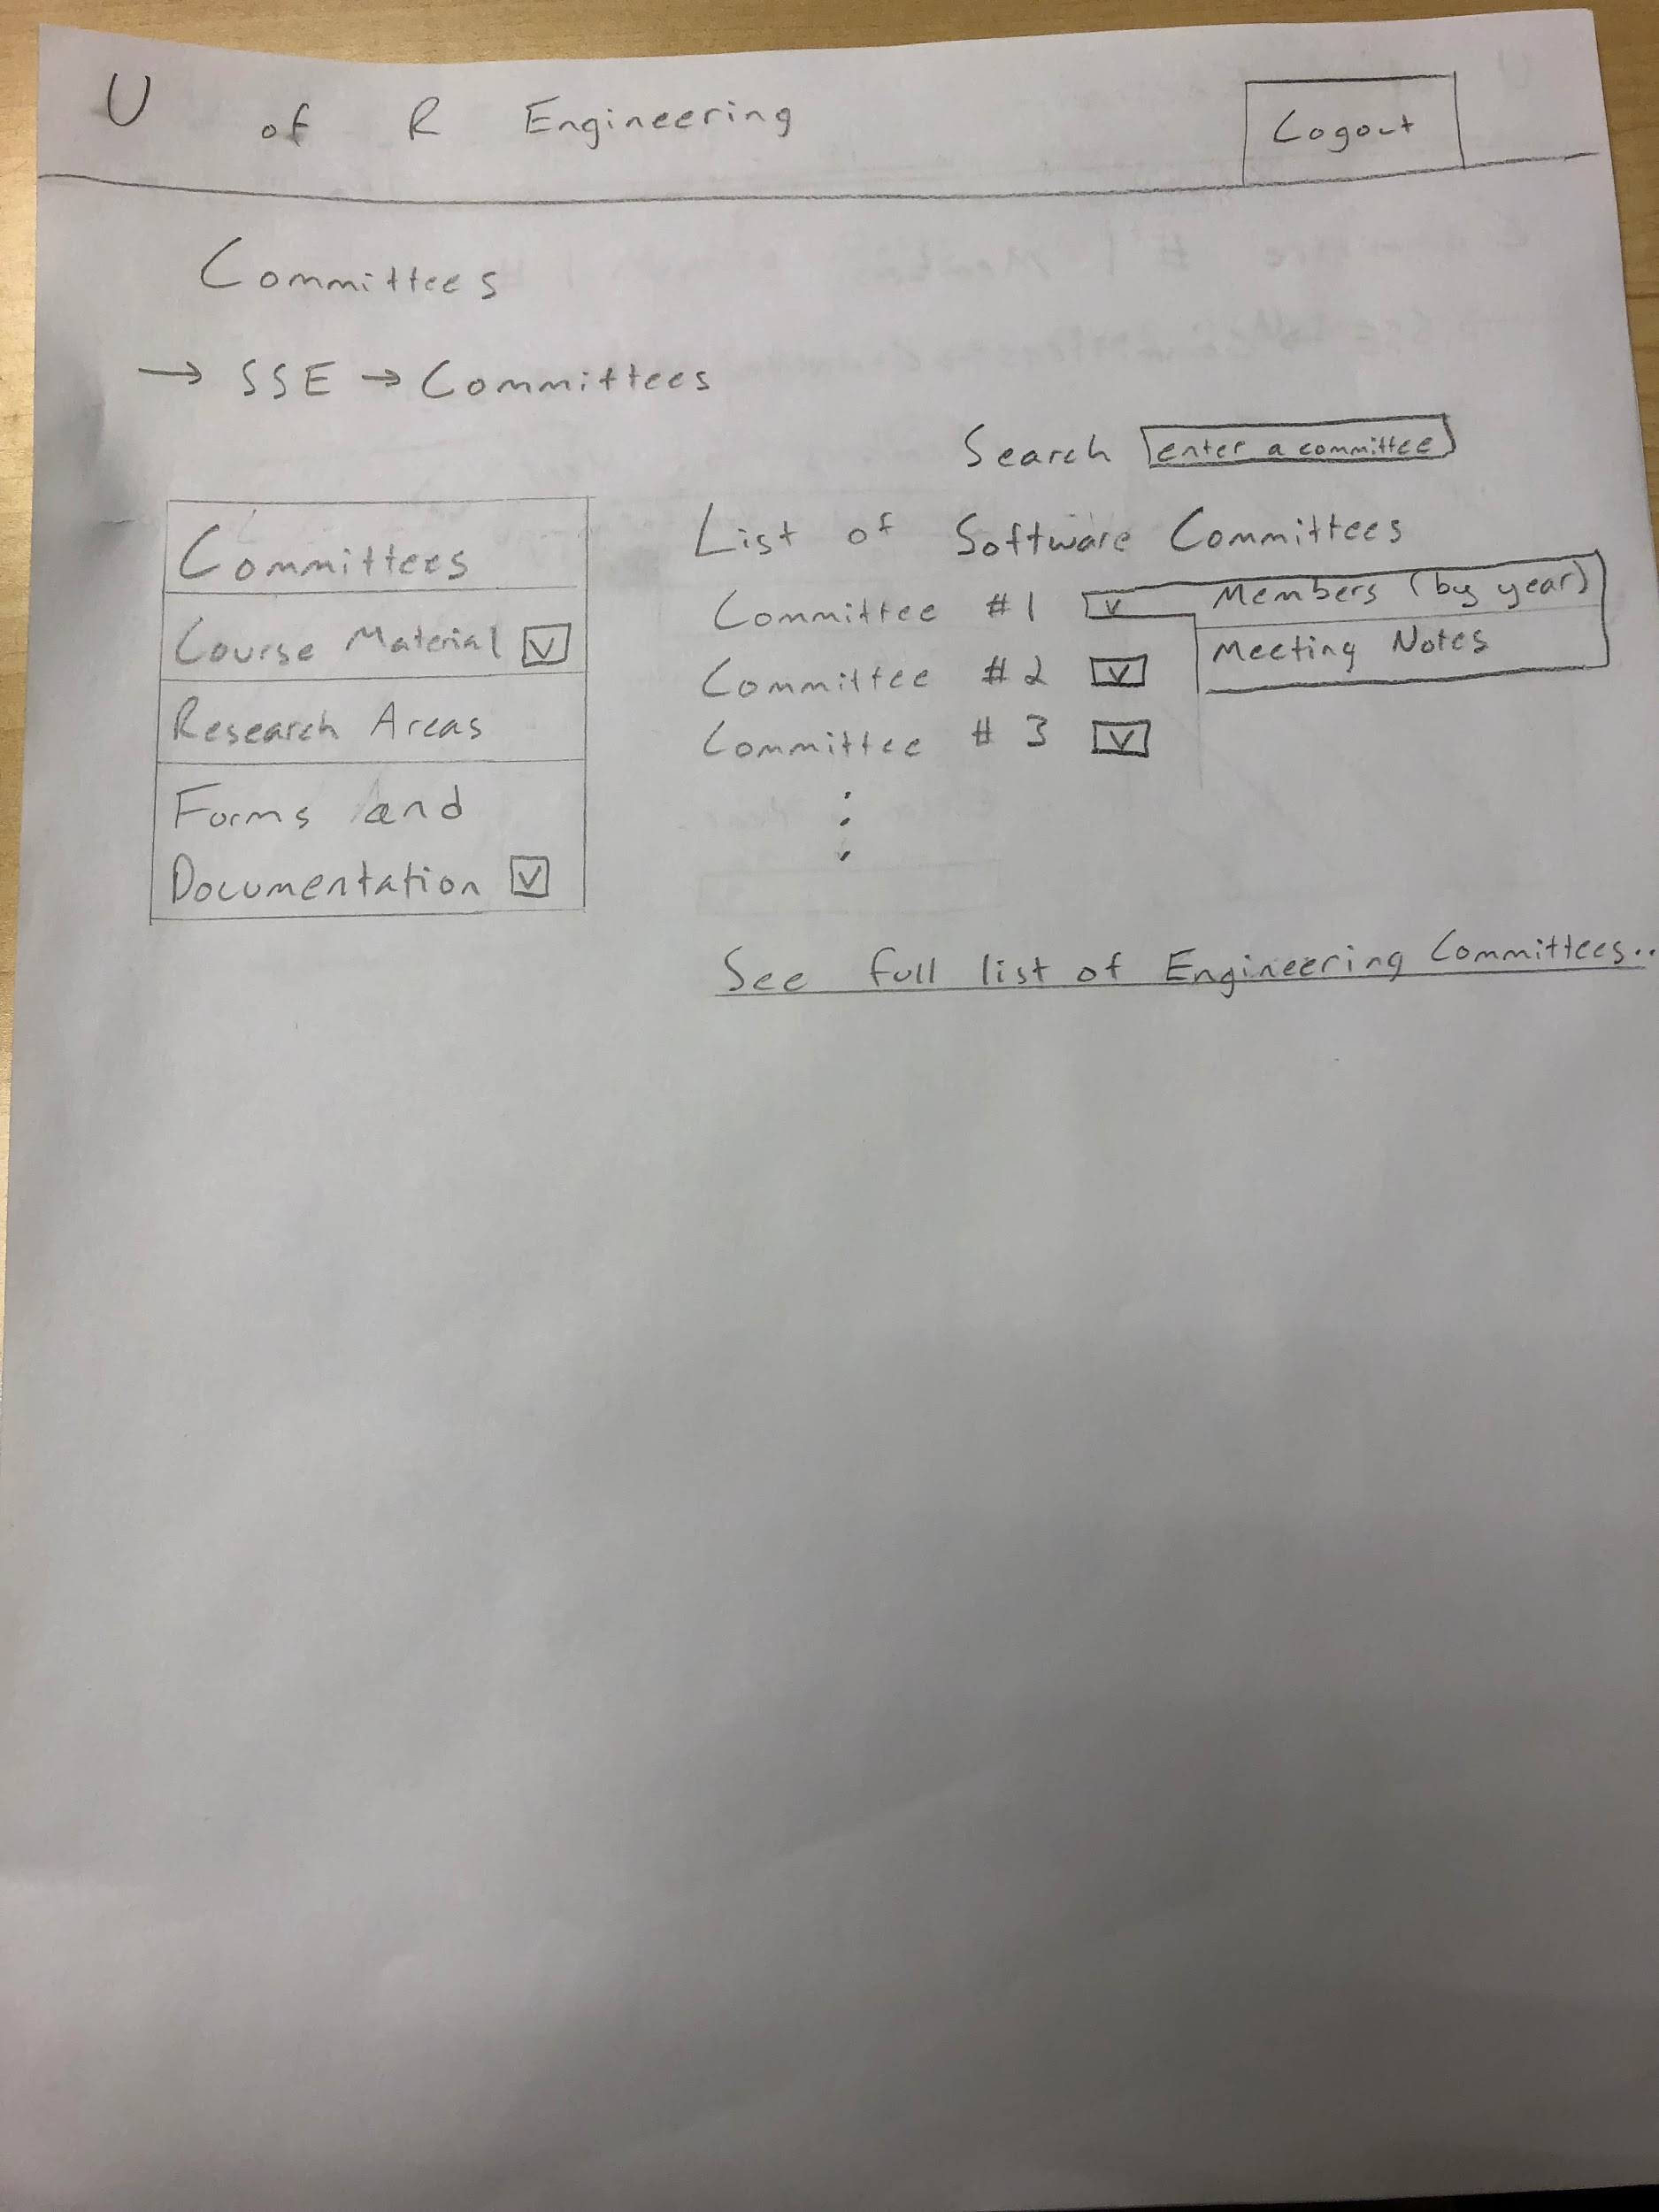 U of R Engineering
Logout
Committees
→ SSE → Committees
Search enter a committee
Committees
Course Material V
Research Areas
Forms and
Documentation V
List of Software Committees
Committee #1 V
Members (by year)
Meeting Notes
Committee #2 V
Committee #3 V
See full list of Engineering Committees..